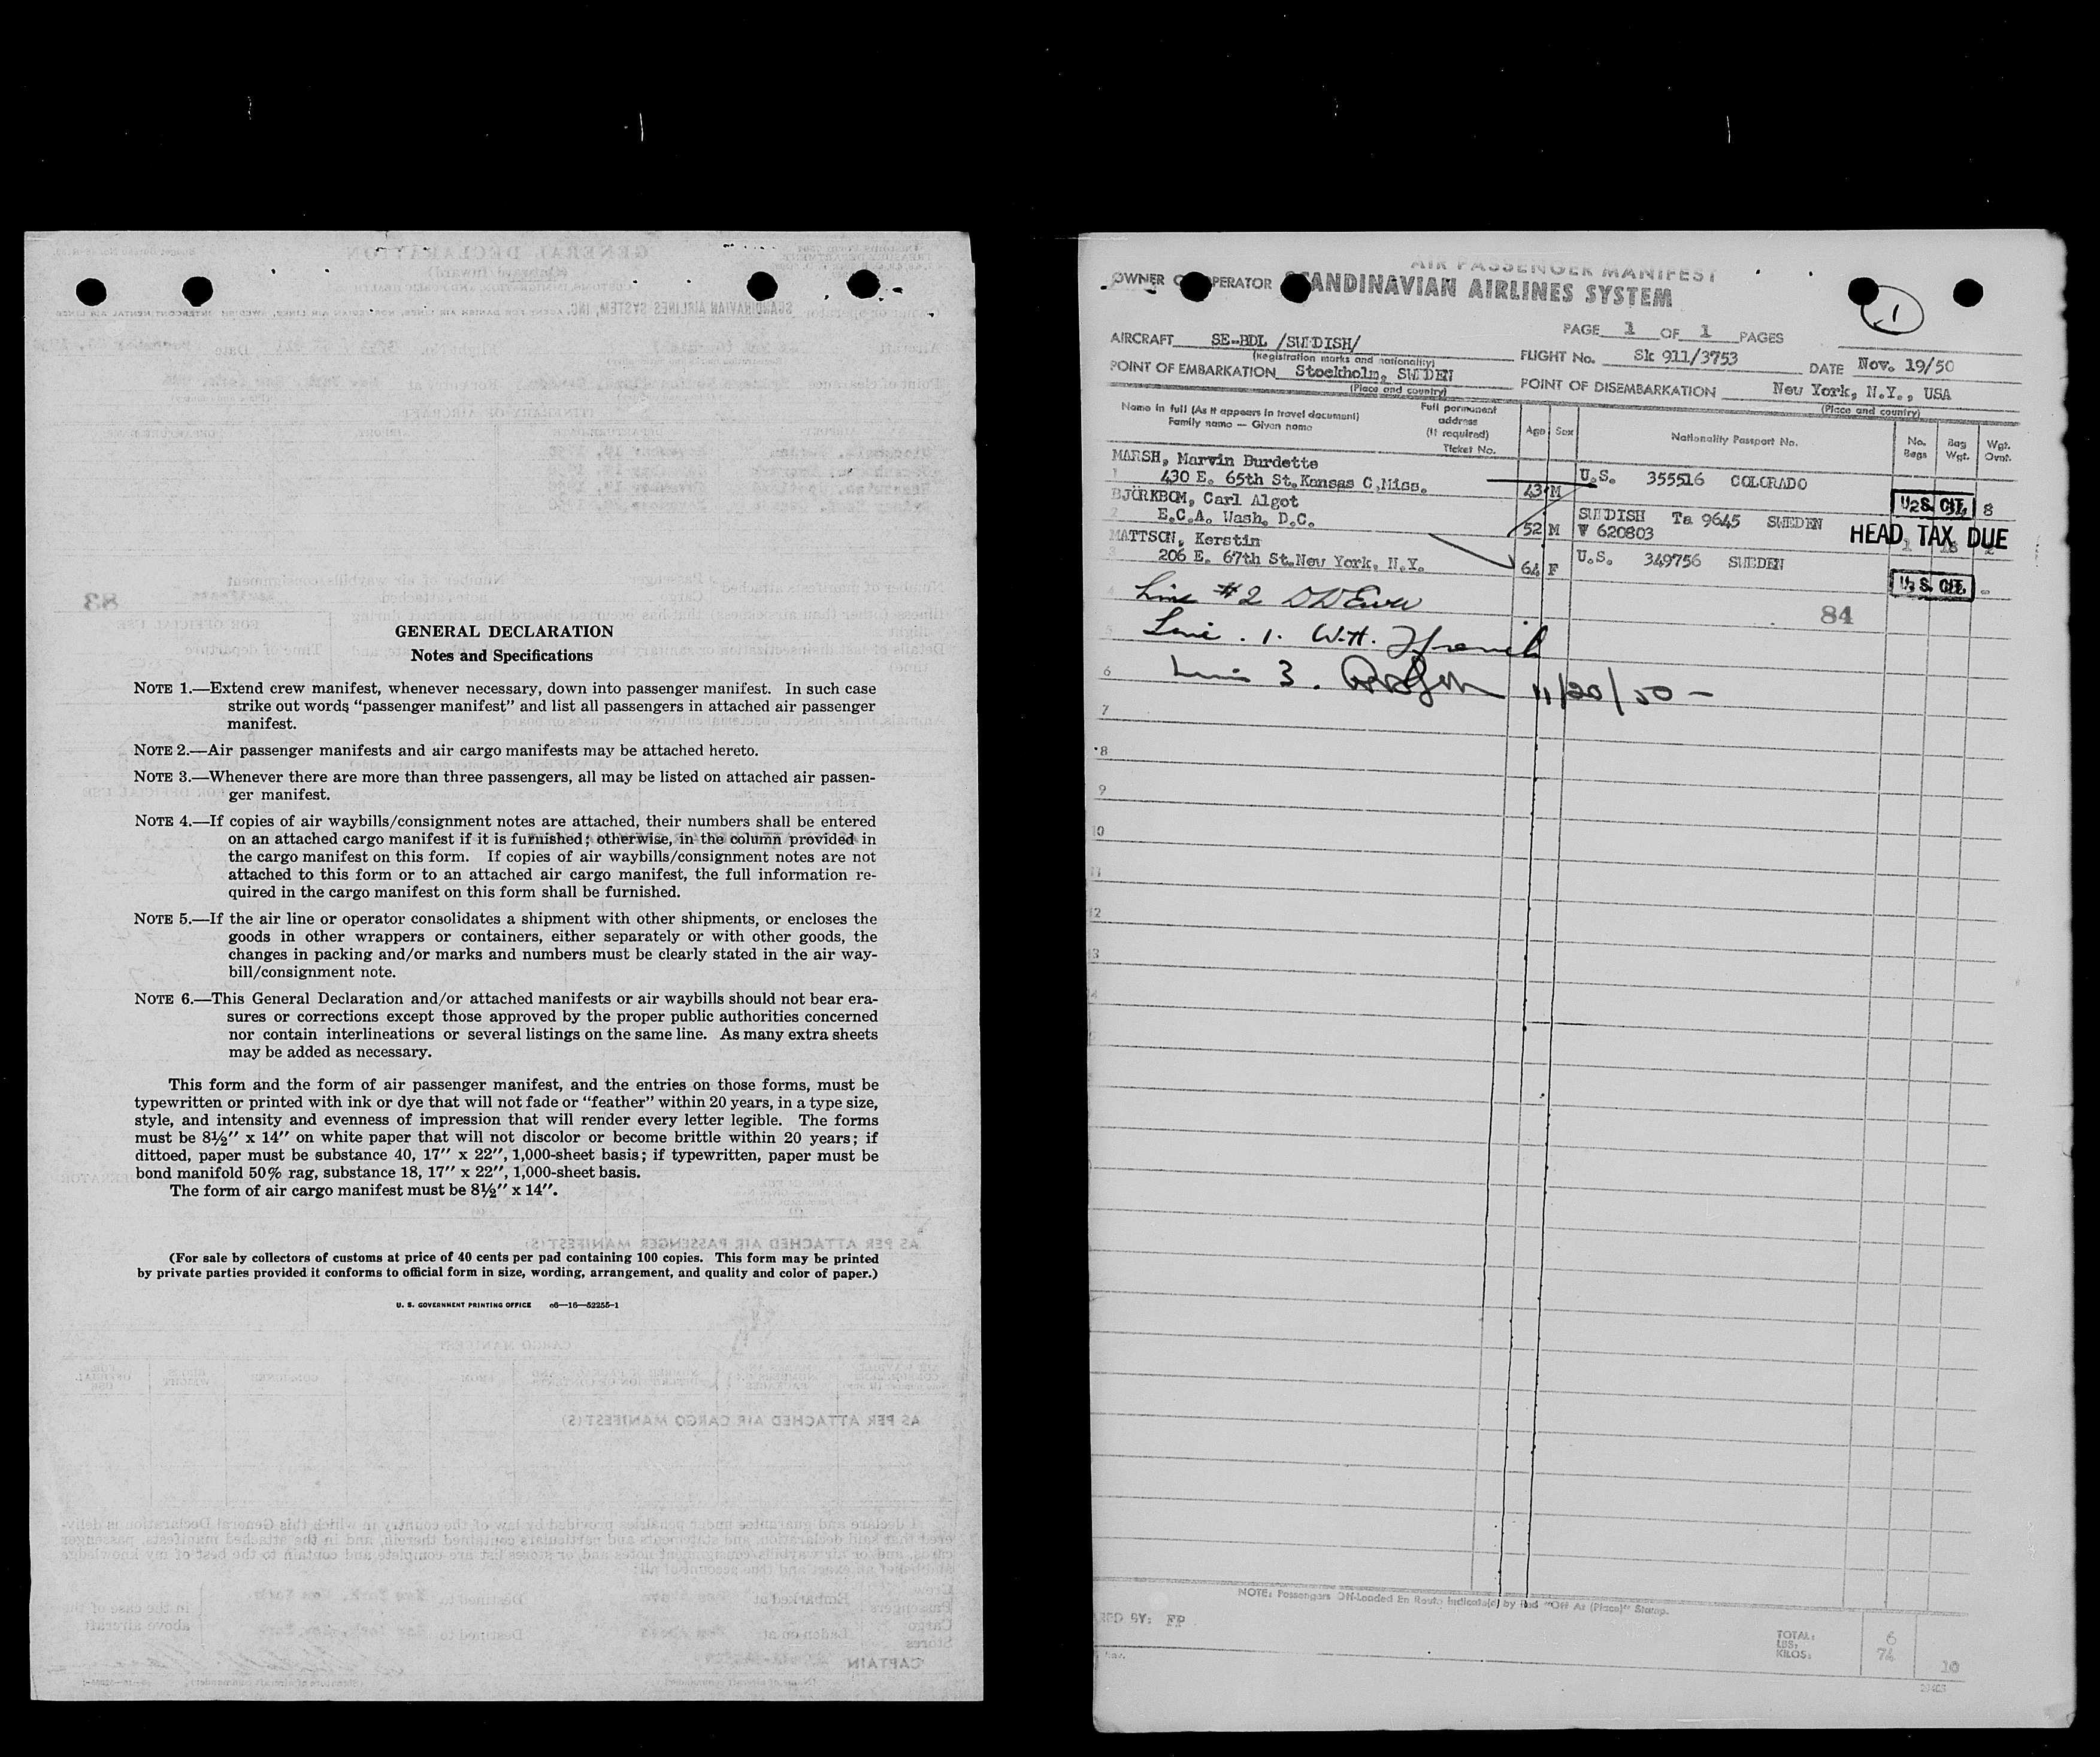 GENERAL DECLARATION
Notes and Specifications
NOTE 1.—Extend crew manifest, whenever necessary, down into passenger manifest. In such case
strike out words “passenger manifest” and list all passengers in attached air passenger
manifest.
NOTE 2.—Air passenger manifests and air cargo manifests may be attached hereto.
NOTE 3.—Whenever there are more than three passengers, all may be listed on attached air passen-
ger manifest.
NOTE 4.—If copies of air waybills/consignment notes are attached, their numbers shall be entered
on an attached cargo manifest if it is furnished; otherwise, in the column provided in
the cargo manifest on this form. If copies of air waybills/consignment notes are not
attached to this form or to an attached air cargo manifest, the full information re-
quired in the cargo manifest on this form shall be furnished.
NOTE 5.—If the air line or operator consolidates a shipment with other shipments, or encloses the
goods in other wrappers or containers, either separately or with other goods, the
changes in packing and/or marks and numbers must be clearly stated in the air way-
bill/consignment note.
NOTE 6.—This General Declaration and/or attached manifests or air waybills should not bear era-
sures or corrections except those approved by the proper public authorities concerned
nor contain interlineations or several listings on the same line. As many extra sheets
may be added as necessary.
This form and the form of air passenger manifest, and the entries on those forms, must be
typewritten or printed with ink or dye that will not fade or “feather” within 20 years, in a type size,
style, and intensity and evenness of impression that will render every letter legible. The forms
must be 8½″ x 14″ on white paper that will not discolor or become brittle within 20 years; if
dittoed, paper must be substance 40, 17″ x 22″, 1,000-sheet basis; if typewritten, paper must be
bond manifold 50% rag, substance 18, 17″ x 22″, 1,000-sheet basis.
The form of air cargo manifest must be 8½″ x 14″.
(For sale by collectors of customs at price of 40 cents per pad containing 100 copies. This form may be printed
by private parties provided it conforms to official form in size, wording, arrangement, and quality and color of paper.)
U. S. GOVERNMENT PRINTING OFFICE c6—16—52255-1
AIR PASSENGER MANIFEST
OWNER O PERATOR ANDINAVIAN AIRLINES SYSTEM
1
PAGE 1 OF 1 PAGES
AIRCRAFT SE-BDL /SWEDISH/ FLIGHT No. Sk 911/3753 DATE Nov. 19/50
(Registration marks and nationality)
POINT OF EMBARKATION Stockholm, SWEDEN POINT OF DISEMBARKATION New York, N.Y., USA
(Place and country) (Place and country)
Name in full (As it appears in travel document) Full permanent address (If required)
Family name — Given name Ticket No. Age Sex Nationality Passport No. No. Bags Bag Wgt. Wgt. Ovnt.
MARSH, Marvin Burdette
1 430 E. 65th St.Kansas C,Miss. 43 M U.S. 355516 COLORADO U.S. CIT. 8
BJÖRKBOM, Carl Algot
2 E.C.A. Wash. D.C. 52 M SWEDISH Ta 9645 SWEDEN
V 620803 HEAD TAX DUE
MATTSON, Kerstin
3 206 E. 67th St.New York, N.Y. 64 F U.S. 349756 SWEDEN U.S. CIT. -
4 Line #2
84
5 Line . 1. W.H. French
6 Line 3. 11/20/50 -
7
8
9
10
11
12
13
NOTE: Passengers Off-Loaded En Route Indicated by Red "Off At (Place)" Stamp.
RED BY: FP
TOTAL: 6
LBS:
KILOS: 74 10